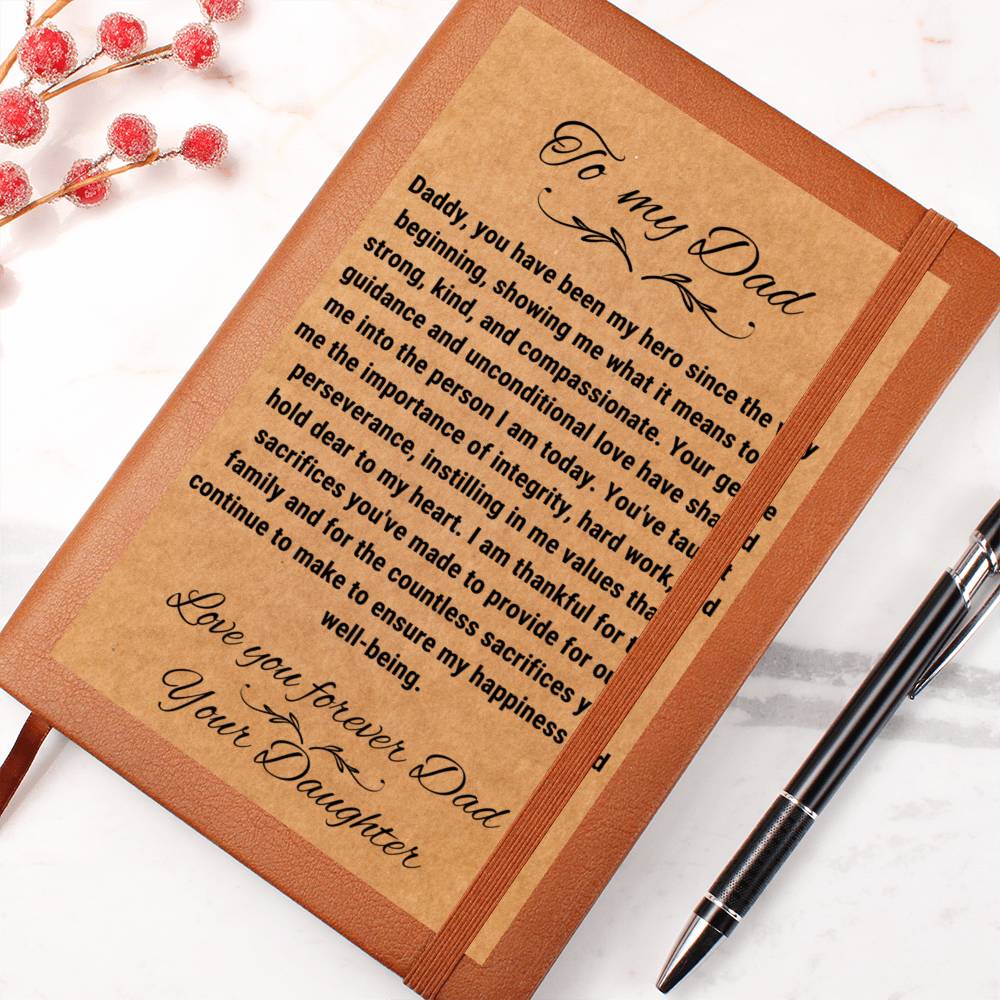 To my Dad
Daddy, you have been my hero since the very
beginning, showing me what it means to be
strong, kind, and compassionate. Your gentle
guidance and unconditional love have shaped
me into the person I am today. You've taught
me the importance of integrity, hard work, and
perseverance, instilling in me values that I
hold dear to my heart. I am thankful for the
sacrifices you've made to provide for our
family and for the countless sacrifices you
continue to make to ensure my happiness and
well-being.
Love you forever Dad
Your Daughter